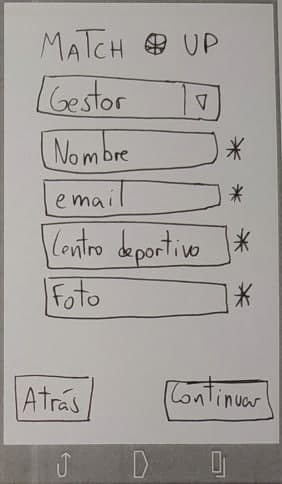 MATCH UP
Gestor
Nombre *
email *
Centro deportivo *
Foto *
Atrás Continuar